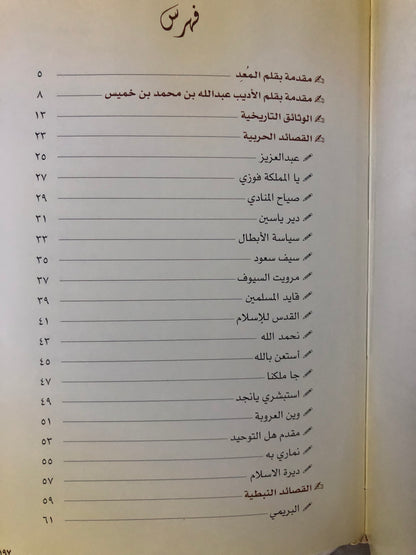 فهرس
مقدمة بقلم المُعِد ٥
مقدمة بقلم الأديب عبدالله بن محمد بن خميس ٨
الوثائق التاريخية ١٣
القصائد الحربية ٢٣
عبدالعزيز ٢٥
يا المملكة فوزي ٢٧
صياح المنادي ٢٩
دير ياسين ٣١
سياسة الأبطال ٣٣
سيف سعود ٣٥
مرويت السيوف ٣٧
قايد المسلمين ٣٩
القدس للإسلام ٤١
نحمد الله ٤٣
أستعن بالله ٤٥
جا ملكنا ٤٧
استبشري يانجد ٤٩
وين العروبة ٥١
مقدم هل التوحيد ٥٣
نماري به ٥٥
ديرة الاسلام ٥٧
القصائد النبطية ٥٩
البريمي ٦١
١٩٧